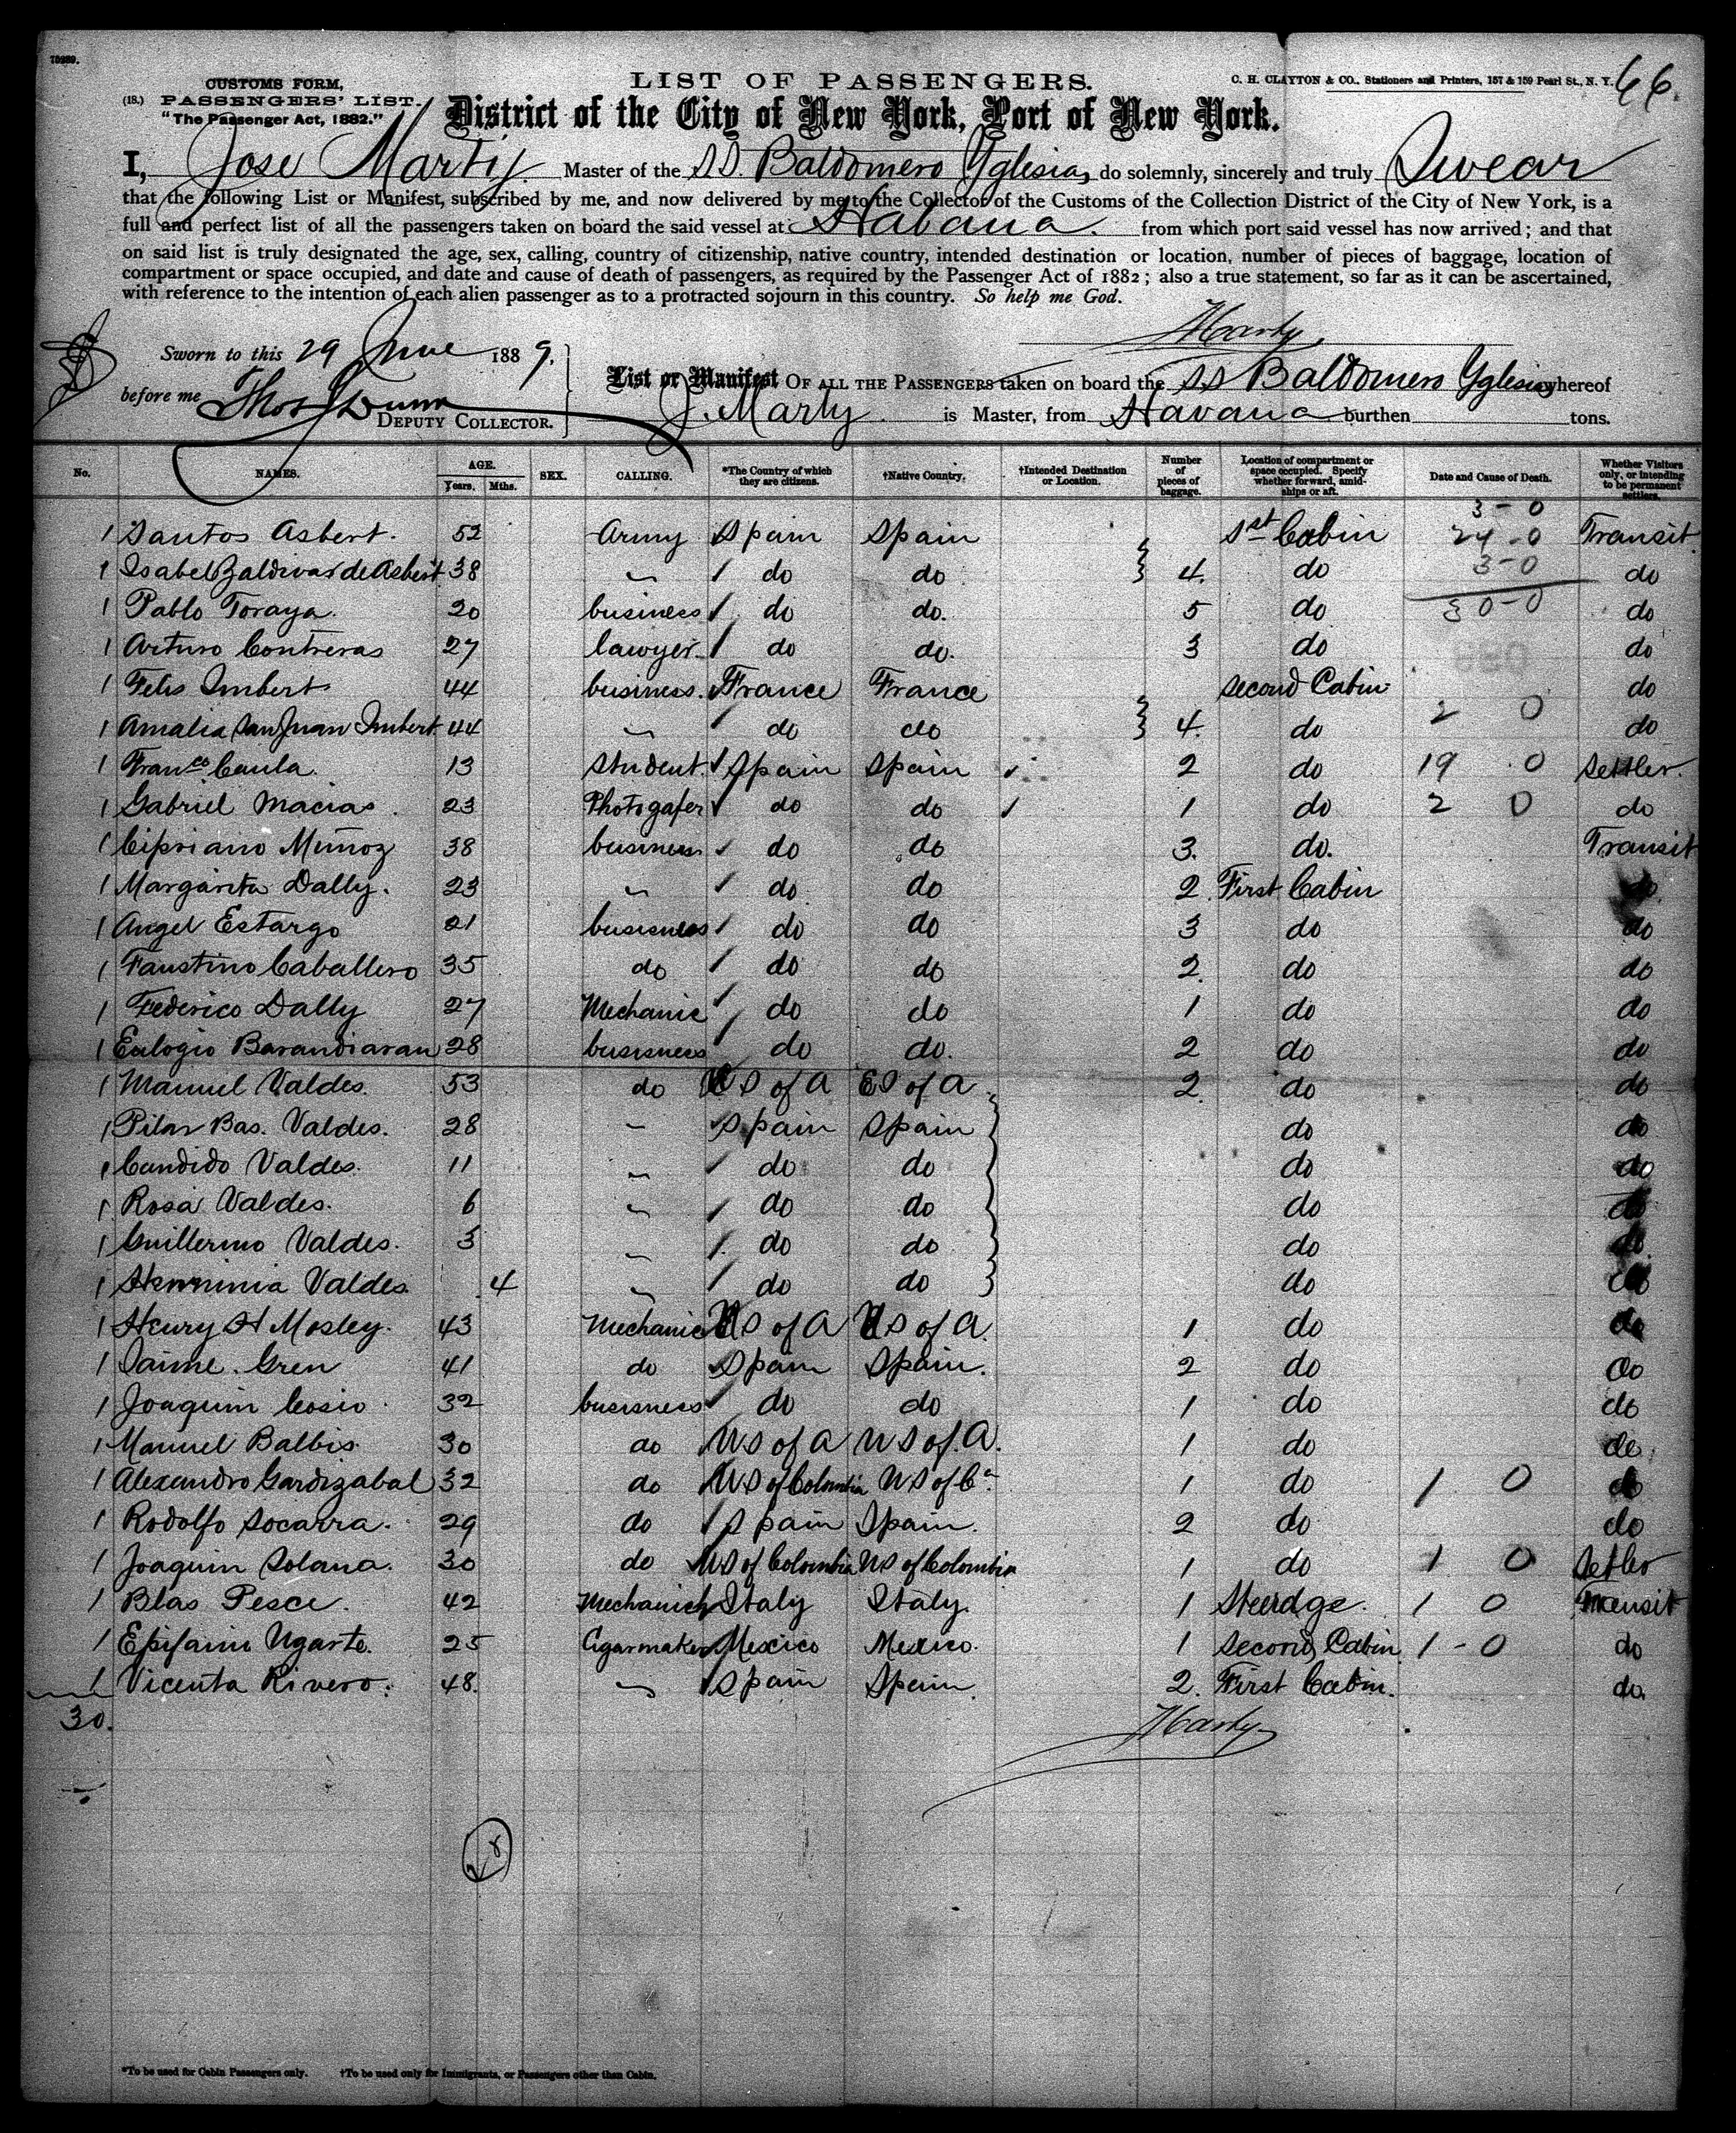 78989.
CUSTOMS FORM,
(18.) PASSENGERS' LIST.
"The Passenger Act, 1882."
LIST OF PASSENGERS.
C. H. CLAYTON & CO., Stationers and Printers, 157 & 159 Pearl St., N. Y.
66.
District of the City of New York, Port of New York.
I, Jose Marty. Master of the SS. Baldomero Yglesias, do solemnly, sincerely and truly Swear
that the following List or Manifest, subscribed by me, and now delivered by me to the Collector of the Customs of the Collection District of the City of New York, is a
full and perfect list of all the passengers taken on board the said vessel at Habana. from which port said vessel has now arrived; and that
on said list is truly designated the age, sex, calling, country of citizenship, native country, intended destination or location, number of pieces of baggage, location of
compartment or space occupied, and date and cause of death of passengers, as required by the Passenger Act of 1882; also a true statement, so far as it can be ascertained,
with reference to the intention of each alien passenger as to a protracted sojourn in this country. So help me God.
JMarty
Sworn to this 29 June 1889.
before me Thos J Dunn
DEPUTY COLLECTOR.
List or Manifest OF ALL THE PASSENGERS taken on board the SS Baldomero Yglesias whereof
J. Marty is Master, from Havana burthen tons.
No. NAMES. AGE. Years. Mths. SEX. CALLING. *The Country of which they are citizens. †Native Country. †Intended Destination or Location. Number of pieces of baggage. Location of compartment or space occupied. Specify whether forward, amidships or aft. Date and Cause of Death. Whether Visitors only, or intending to be permanent settlers.
3-0
1 Santos Asbert. 52 Army Spain Spain 1st Cabin 24-0 Transit
1 Isabel Zaldivar de Asbert 38 do do 4. do 3-0 do
1 Pablo Toraya. 20 business do do. 5 do 30-0 do
1 Arturo Contreras 27 lawyer do do. 3 do do
1 Felis Imbert 44 business. France France second Cabin do
1 Amalia San Juan Imbert 44 do do 4. do 2 0 do
1 Franco Caula. 13 student. Spain Spain 2 do 19 0 settler.
1 Gabriel Macias. 23 Photogafer do do 1 do 2 0 do
1 Cipriano Muñoz 38 business do do 3. do. Transit
1 Margarita Dally. 23 do do 2 First Cabin do
1 Angel Estargo 21 busisness do do 3 do do
1 Faustino Caballero 35 do do do 2. do do
1 Federico Dally 27 Mechanic do do 1 do do
1 Eulogio Barandiaran 28 busisness do do. 2 do do
1 Manuel Valdes. 53 do US of A US of A 2. do do
1 Pilar Bas. Valdes. 28 Spain Spain do do
1 Candido Valdes. 11 do do do do
1 Rosa Valdes. 6 do do do do
1 Guillermo Valdes. 3 do do do do
1 Herminia Valdes. 4 do do do do
1 Henry H Mosley. 43 Mechanic US of A US of A. 1 do do
1 Jaime. Gren 41 do Spain Spain. 2 do do
1 Joaquin Cosio 32 busisness do do 1 do do
1 Manuel Balbis. 30 do US of A US of A. 1 do do
1 Alexandro Gardizabal 32 do US of Colombia US of Ca. 1 do 1 0 do
1 Rodolfo Socarra. 29 do Spain Spain. 2 do do
1 Joaquin Solana. 30 do US of Colombia US of Colombia 1 do 1 0 Setler
1 Blas Pesce. 42 Mechanich Italy Italy. 1 Steerdge. 1 0 Transit
1 Epifanio Ugarte. 25 Cigarmaker Mexico Mexico. 1 second Cabin 1-0 do
1 Vicenta Rivero. 48. Spain Spain 2. First Cabin. do.
30.
JMarty
*To be used for Cabin Passengers only. †To be used only for Immigrants, or Passengers other than Cabin.